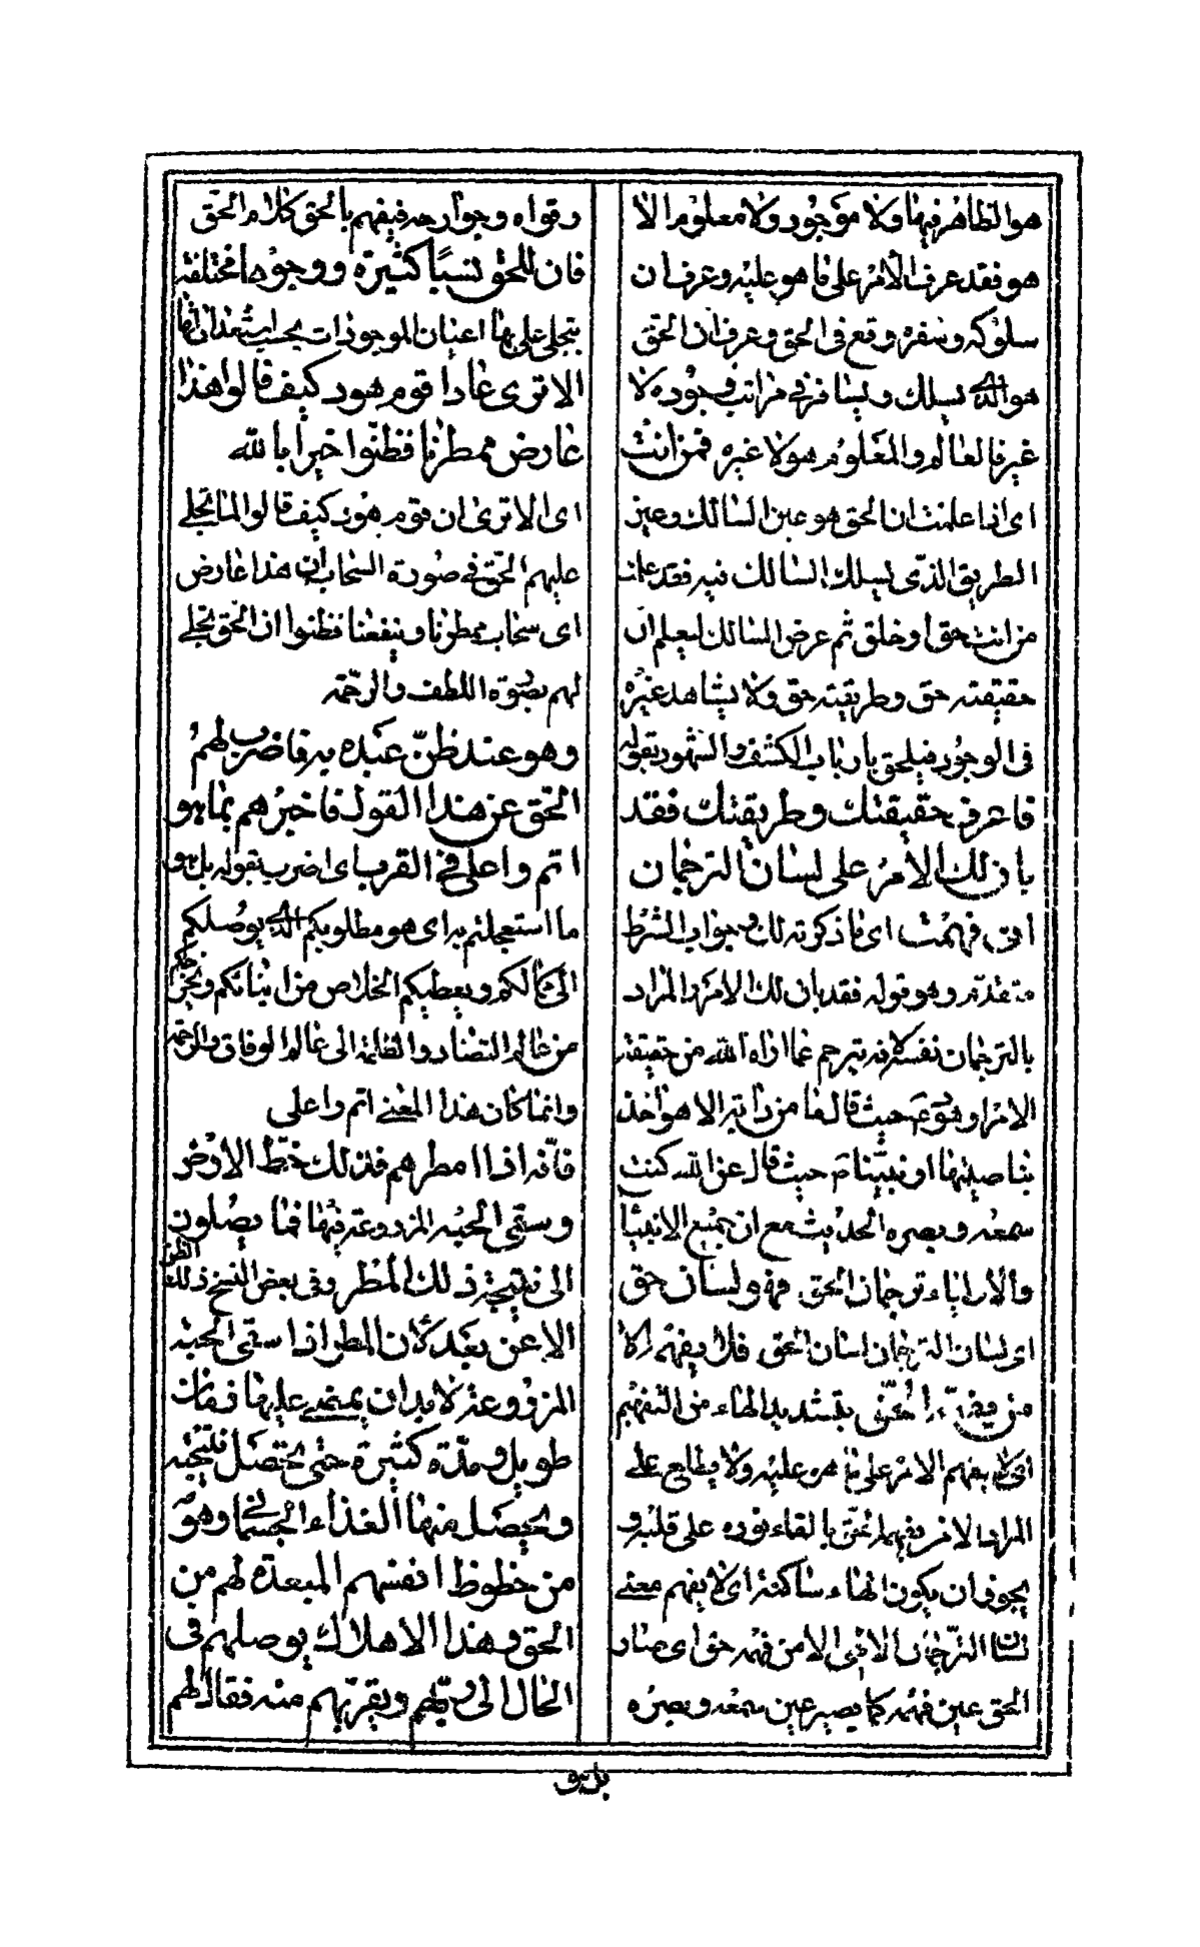 هو الظاهر فيها ولا موجود ولا معلوم الا
هو فقد عرف الامر على ما هو عليه وعرف ان
سلوكه وسفره وقع في الحق وعرف ان الحق
هو الذي يسلك ويسافر في مراتب وجوده لا
غير فالعالم والمعلوم هو لا غيره فمن انت
اى اذا علمت ان الحق هو عين السالك وعين
الطريق الذى يسلك السالك فيه فقد علمت
من انت حق او خلق ثم عرض السالك ليعلم ان
حقيقته حق وطريقته حق ولا يشاهد غيره
فى الوجود فيلحق بارباب الكشف والشهود بقوله
فاعرف حقيقتك وطريقتك فقد
بان لك الامر على لسان الترجمان
ان فهمت اى ما ذكرته لك وجواب الشرط
متقدم وهو قوله فقد بان لك الامر والمراد
بالترجمان نفسه فانه يترجم عما اراه الله من حقيقة
الامر او هود عم حيث قال ما من دابة الا هو اخذ
بناصيتها او نبينا صم حيث قال عن الله كنت
سمعه وبصره الحديث مع ان جميع الانبيا
والاولياء ترجمان الحق فهو لسان حق
اى لسان الترجمان لسان الحق فلا يفهمه الا
من فهمه الحق بتشديد الهاء من التفهيم
اى لا يفهم الامر على ما هو عليه ولا يطلع على
المراد الا من يفهمه الحق بالقاء نوره على قلبه و
يجوز ان يكون الهاء ساكنة اى لا يفهم معنى
لسان الترجمان الالهى الا من فهمه حق اى صار
الحق عين فهمه كما يصير عين سمعه وبصره
وقواه وجوارحه فيفهم بالحق كلام الحق
فان للحق نسبًا كثيرة ووجوها مختلفة
يتجلى على بها اعيان الموجودات بحسب استعداداتها
الا ترى عادا قوم هود كيف قالوا هذا
عارض ممطرنا فظنوا خيرا بالله
اى الا ترى ان قوم هود كيف قالوا لما تجلى
عليهم الحق في صورة السحاب ان هذا عارض
اى سحاب ممطرنا وينفعنا فظنوا ان الحق تجلى
لهم بصورة اللطف والرحمة
وهو عند ظنّ عبده به فاضرب لهم
الحق عن هذا القول فاخبرهم بما هو
اتم واعلى في القرب اى اضرب بقوله بل هو
ما استعجلتم به اى هو مطلوبكم الذي يوصلكم
الى كمالكم ويعطيكم الخلاص من انياتكم ويخرجكم
من عالم التضاد والظلمة الى عالم الوفاق والرحمة
وانما كان هذا المعنى اتم واعلى
فانّه اذا امطرهم فذلك حظّ الارض
وسقى الحبّة المزروعة فيها فما يصلون
الى نتيجة ذلك المطر وفى بعض النسخ ذلك الظن
الا عن بعد لان المطر اذا سقى الحبة
المزروعة لا بد ان يمضى عليها زمان
طويل ومدّة كثيرة حتى يحصل نتيجته
ويحصل منها الغذاء الجسمانى وهو
من حظوظ انفسهم المبعدة لهم من
الحق وهذا الاهلاك يوصلهم فى
الحال الى ربّهم ويقربهم منه فقال لهم
بل هو